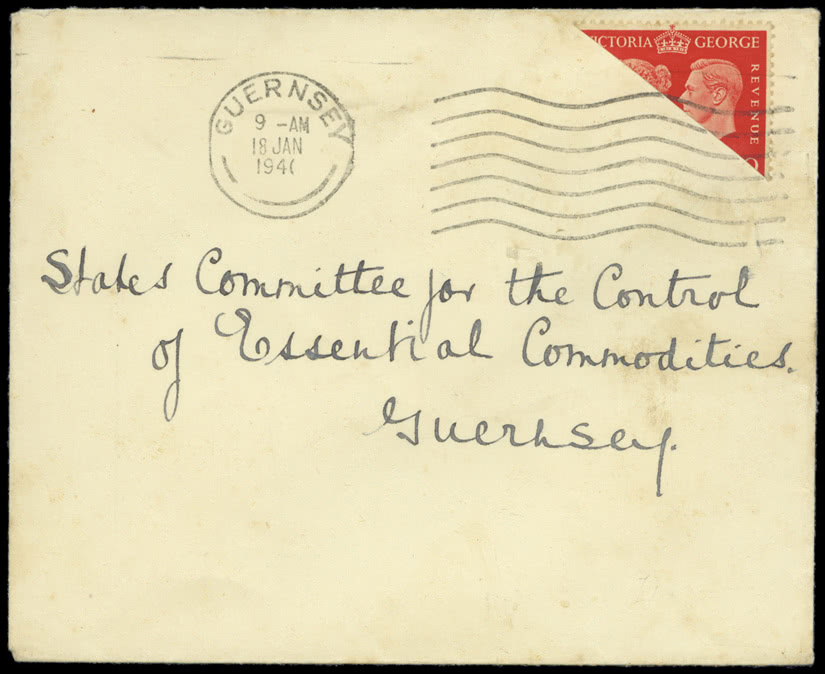 VICTORIA GEORGE
REVENUE
GUERNSEY
9 -AM
18 JAN
194
States Committee for the Control
of Essential Commodities.
Guernsey.